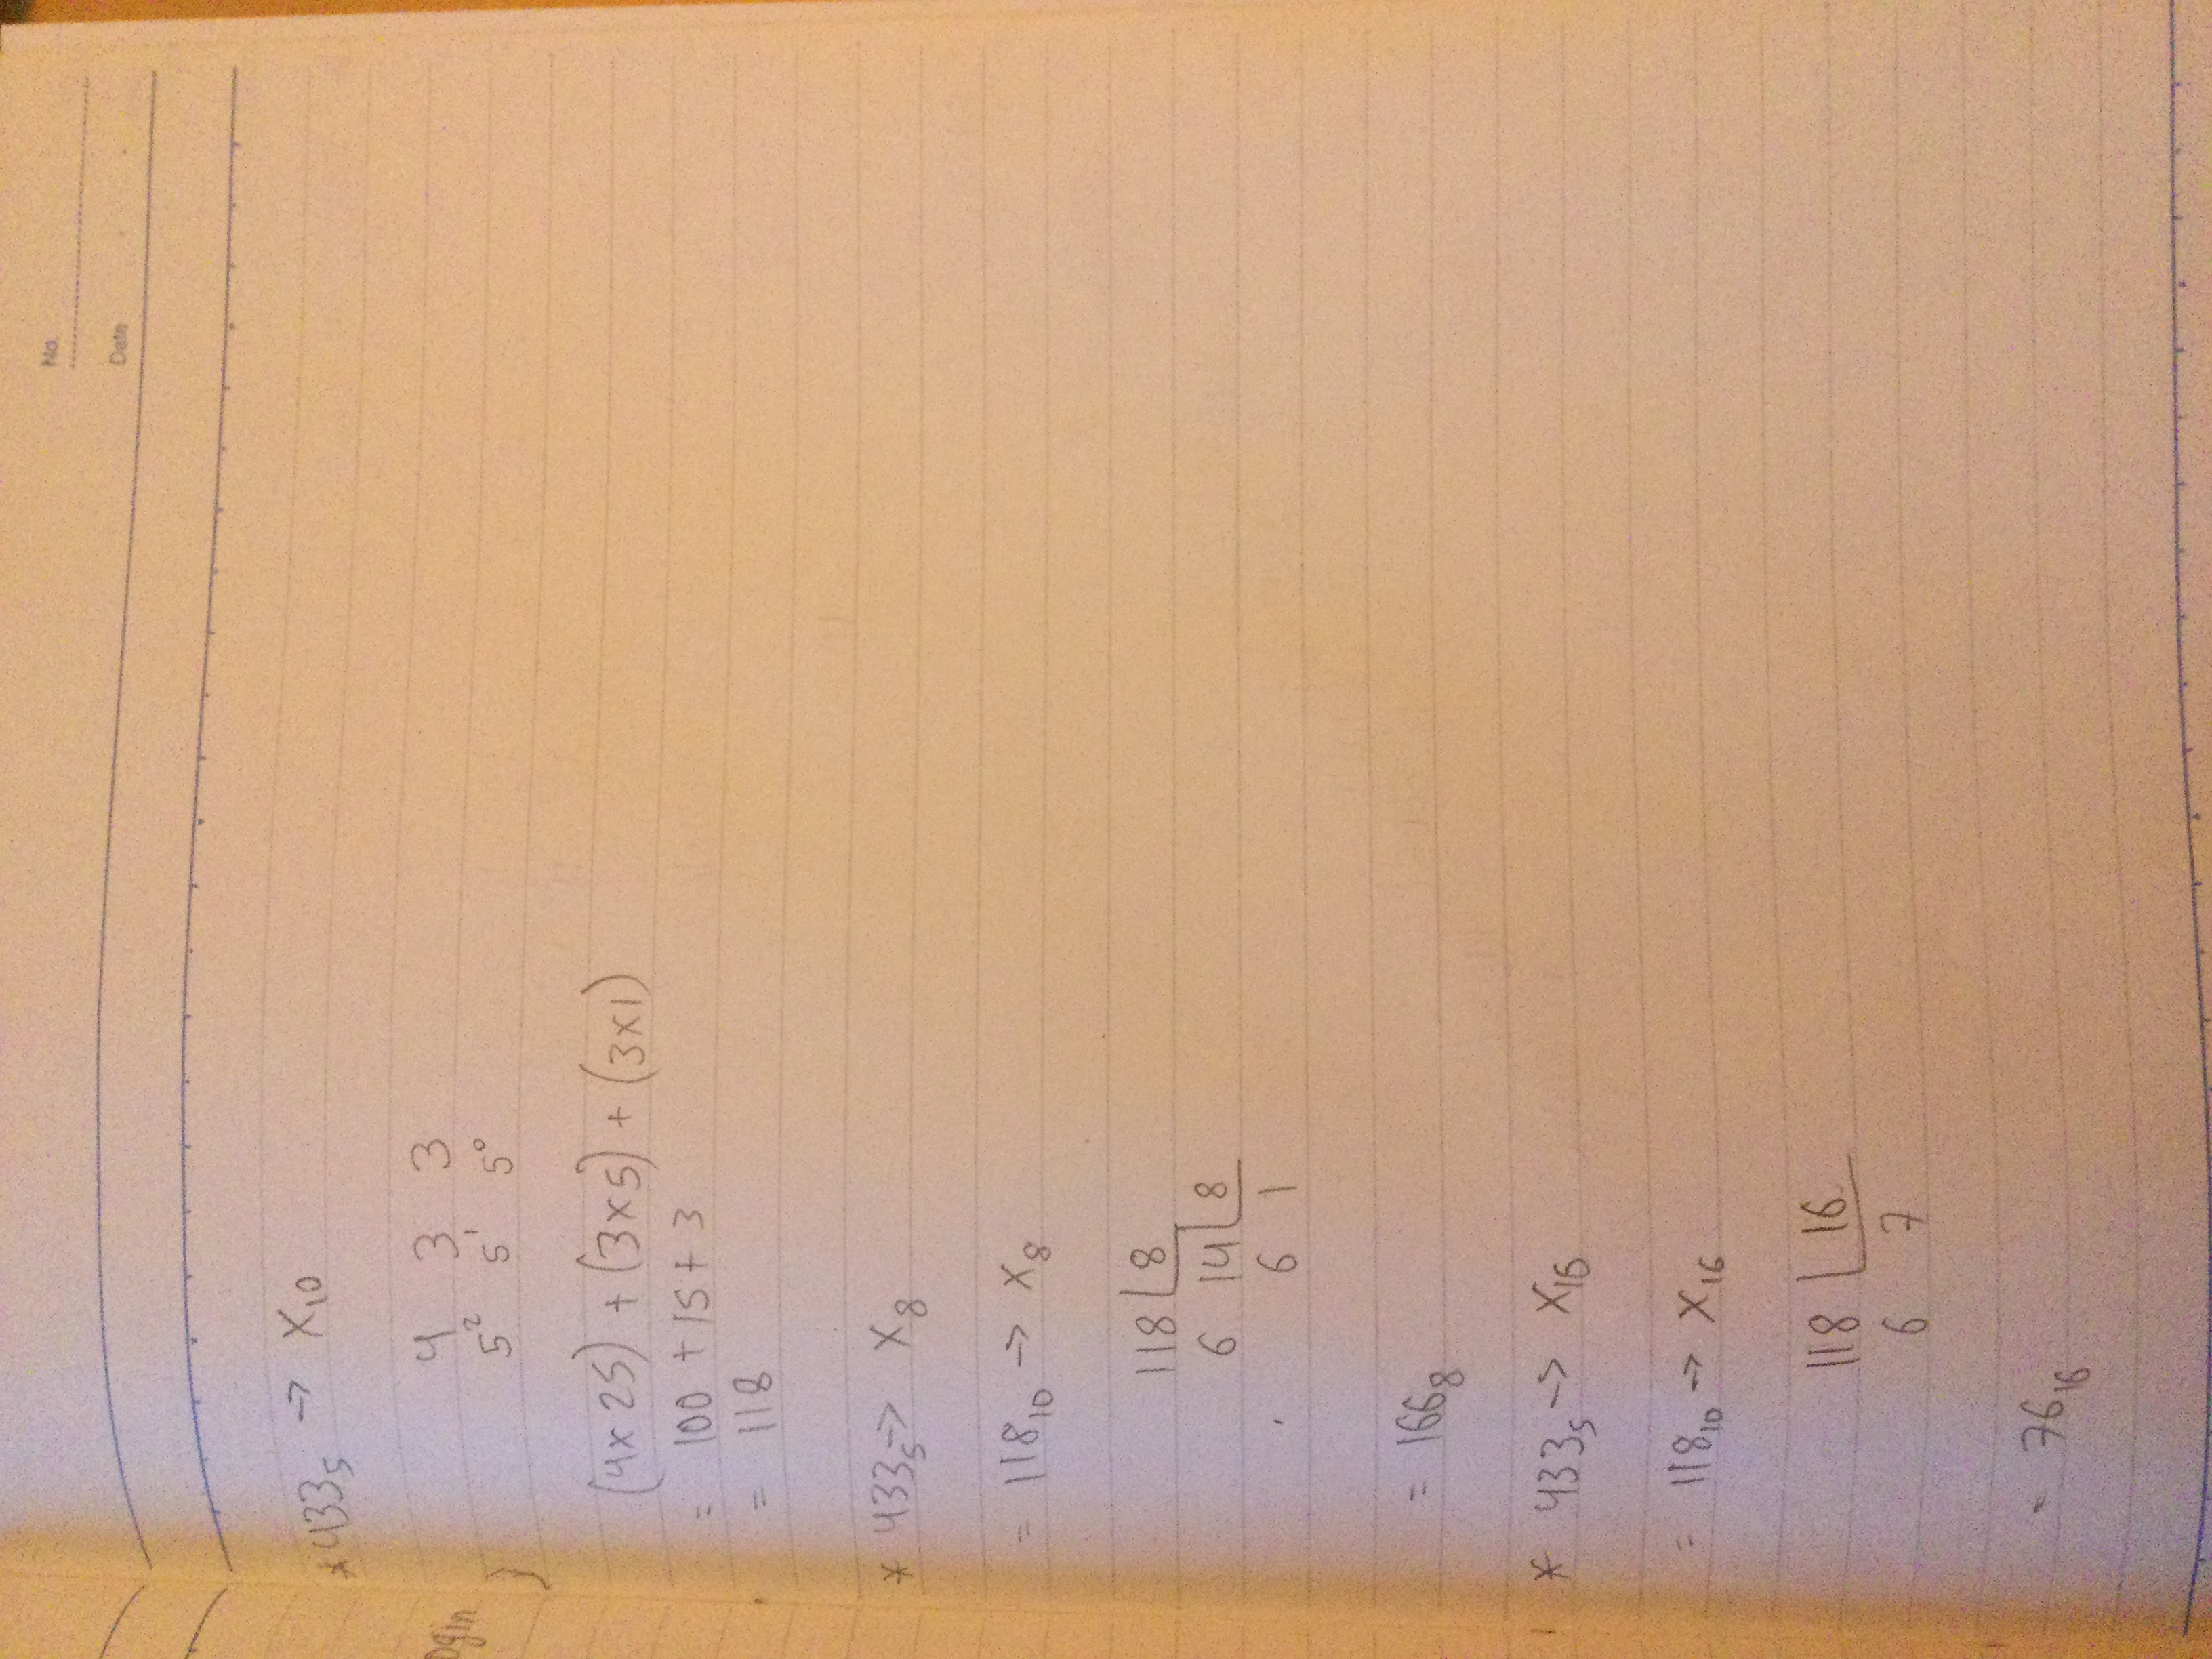 No.
Date
ogin
)
* 433₅ → X₁₀
4 3 3
5² 5¹ 5⁰
(4x25) + (3x5) + (3x1)
= 100 + 15 + 3
= 118
* 433₅ → X₈
= 118₁₀ → X₈
118 8
6 14 8
6 1
= 166₈
* 433₅ → X₁₆
= 118₁₀ → X₁₆
118 16
6 7
= 76₁₆